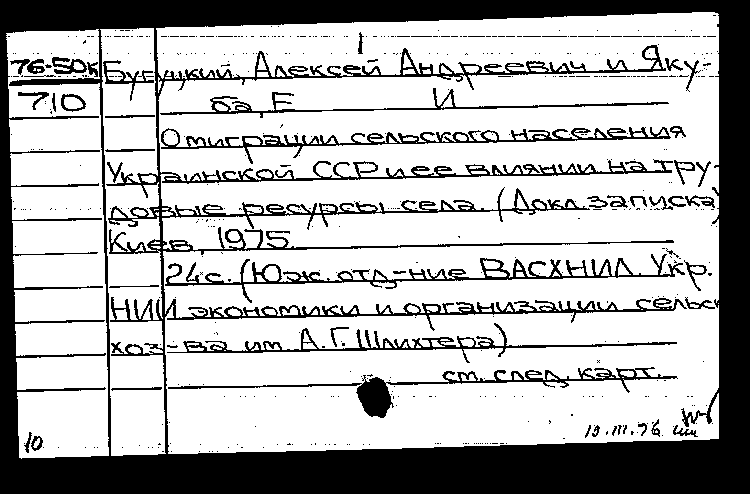 1
76-50к Бугуцкий, Алексей Андреевич и Яку-
710 ба, Е И
О миграции сельского населения
Украинской ССР и ее влиянии на тру-
довые ресурсы села. (Докл. записка)
Киев, 1975.
24с. (Юж. отд-ние ВАСХНИЛ. Укр.
НИИ экономики и организации сельск
хоз-ва им. А.Г. Шлихтера)
см. след. карт.
10